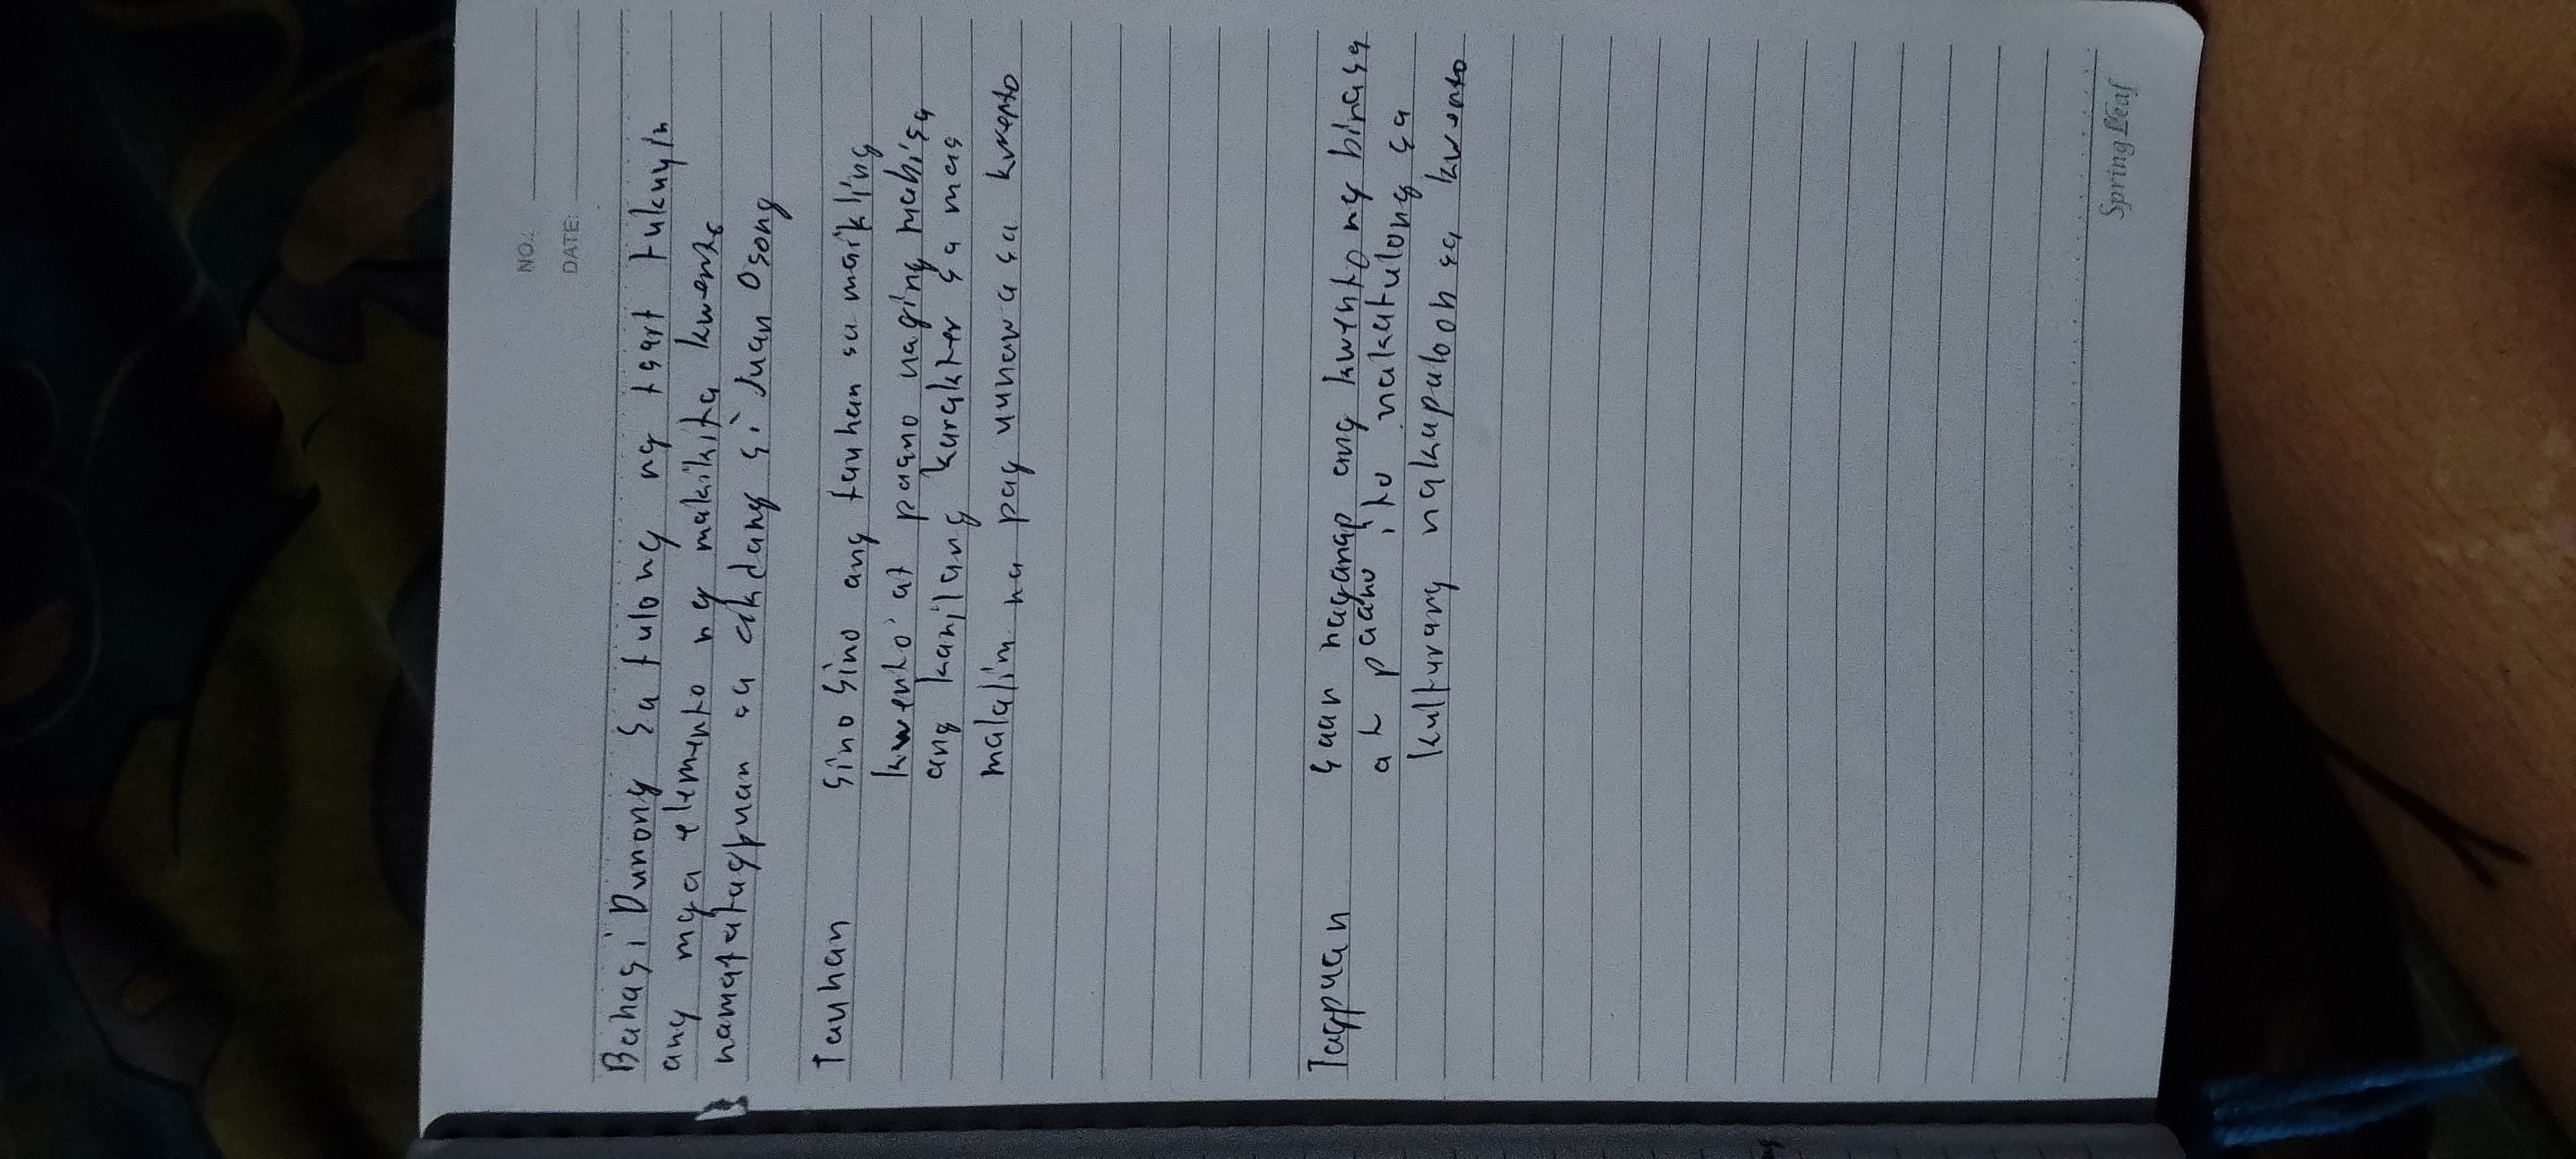 NO.:
DATE:
Bahagi Dunong Sa tulong ng tsart tukuyin
ang mga elemento ng makikita kwento
namatatagpuan sa akdang si Juan Osong
Tauhan
sino sino ang tauhan sa maikling
kwento at paano naging mabisa
ang kanilang karakter sa mas
malalim na pag uunawa sa kwento
Tagpuan
saan naganap ang kwento ng binasa
at paano ito nakatulong sa
kulturang nakapaloob sa kwento
Spring Leaf